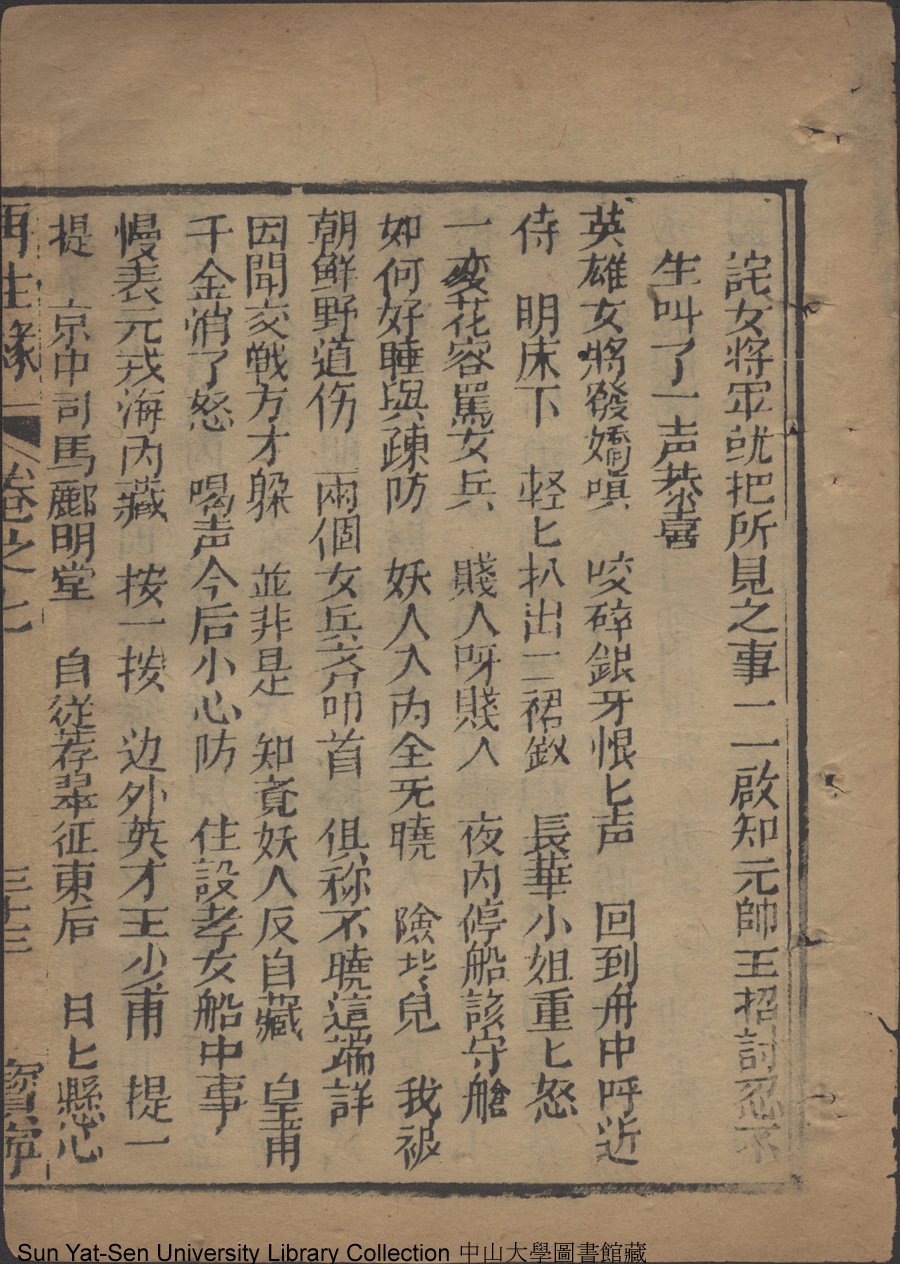 詫女将軍就把所見之事一一啟知元帥王招討忍不
生叫了一声恭喜
英雄女將發嬌嗔　咬碎銀牙恨匕声　回到舟中呼近
侍　明床下　軽匕扒出二裙釵　長華小姐重匕怒
一変花容罵女兵　賤人呀賤人　夜内停船該守艙
如何好睡與疎防　妖人入内全旡曉　險些兒　我被
朝鮮野道伤　兩個女兵齐叩首　俱称不曉這端詳
因聞交戦方才躲　並非是　知竟妖人反自藏　皇甫
千金消了怒　喝声今后小心防　住設孝女船中事
慢表元戎海内藏　按一按　边外英才王少甫　提一
提　京中司馬酈明堂　自從荐舉征東后　日匕懸心
再生緣　卷之七　三十三　寳寧
Sun Yat-Sen University Library Collection 中山大學圖書館藏